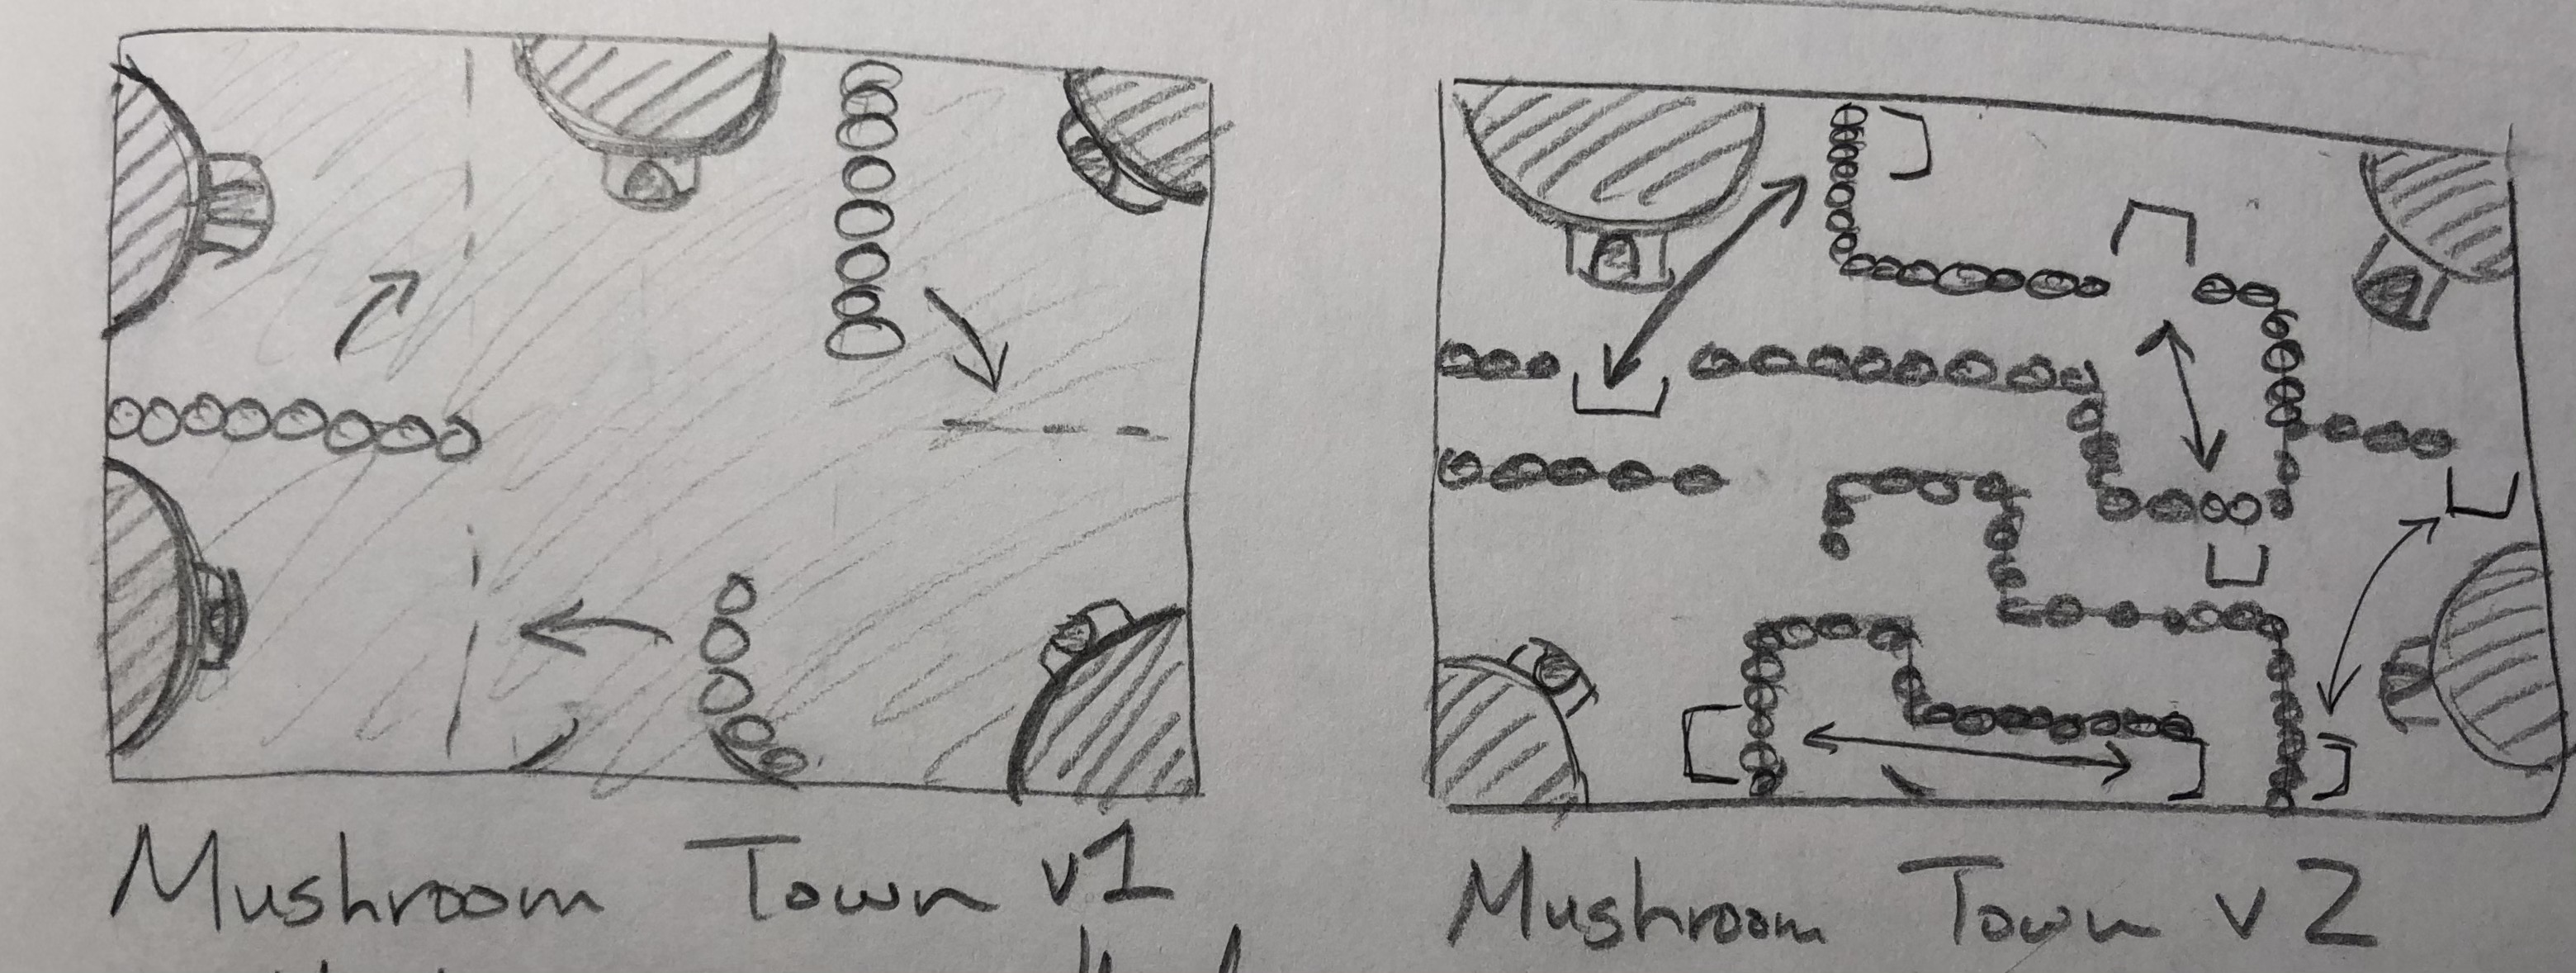 Mushroom Town v1
Mushroom Town v2